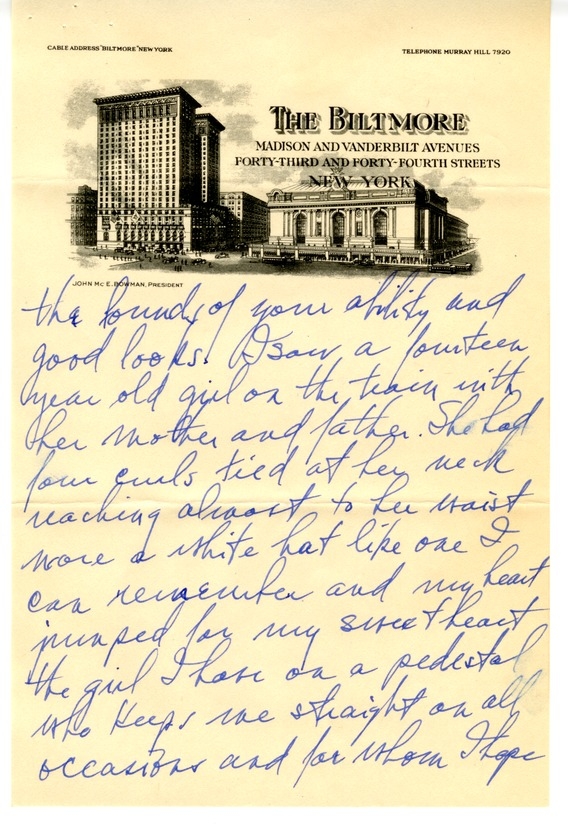 CABLE ADDRESS "BILTMORE" NEW YORK
TELEPHONE MURRAY HILL 7920
THE BILTMORE
MADISON AND VANDERBILT AVENUES
FORTY-THIRD AND FORTY-FOURTH STREETS
NEW YORK
JOHN MC E. BOWMAN, PRESIDENT
the bounds of your ability and
good looks. I saw a fourteen
year old girl on the train with
her mother and father. She had
four curls tied at her neck
reaching almost to her waist
wore a white hat like one I
can remember and my heart
jumped for my sweetheart
the girl I have on a pedestal
who keeps me straight on all
occasions and for whom I hope